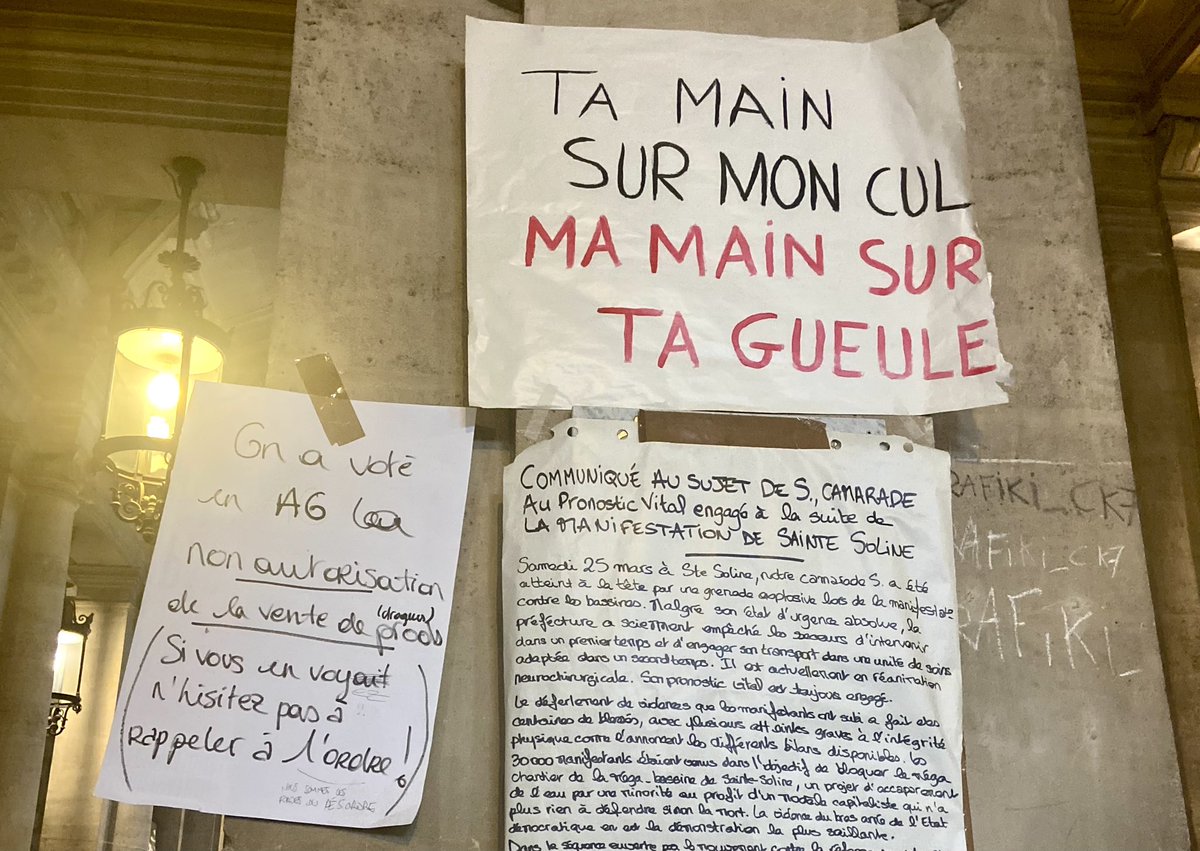 TA MAIN
SUR MON CUL
MA MAIN SUR
TA GUEULE
On a voté
en AG la
non autorisation
de la vente de prods
(drogues)
(Si vous en voyait
n'hisitez pas à
rappeler à l'ordre!)
NOUS SOMMES LES
FORCES DU DÉSORDRE
COMMUNIQUÉ AU SUJET DE S., CAMARADE
AU Pronostic Vital engagé à la suite de
LA MANIFESTATION DE SAINTE SOLINE
Samedi 25 mars à Ste Soline, notre camarade S. a été
atteint à la tête par une grenade explosive lors de la manifestation
contre les bassines. Malgré son état d'urgence absolue, la
préfecture a sciemment empêché les secours d'intervenir
dans un premier temps et d'engager son transport dans une unité de soins
adaptée dans un second temps. Il est actuellement en réanimation
neurochirurgicale. Son pronostic vital est toujours engagé.
Le déferlement de violences que les manifestants ont subi a fait des
centaines de blessés, avec plusieurs atteintes graves à l'intégrité
physique comme l'annoncent les différents bilans disponibles. Les
30 000 manifestants étaient venus dans l'objectif de bloquer le méga-
chantier de la méga-bassine de Sainte-Soline, un projet d'accaparement
de l'eau par une minorité au profit d'un modèle capitaliste qui n'a
plus rien à défendre sinon la mort. La violence du bras armé de l'Etat
démocratique en est la démonstration la plus saillante.
Dans la séquence ouverte par le mouvement contre la
RAFIKI_CK7
RAFIKI_CK7
RAFIKI